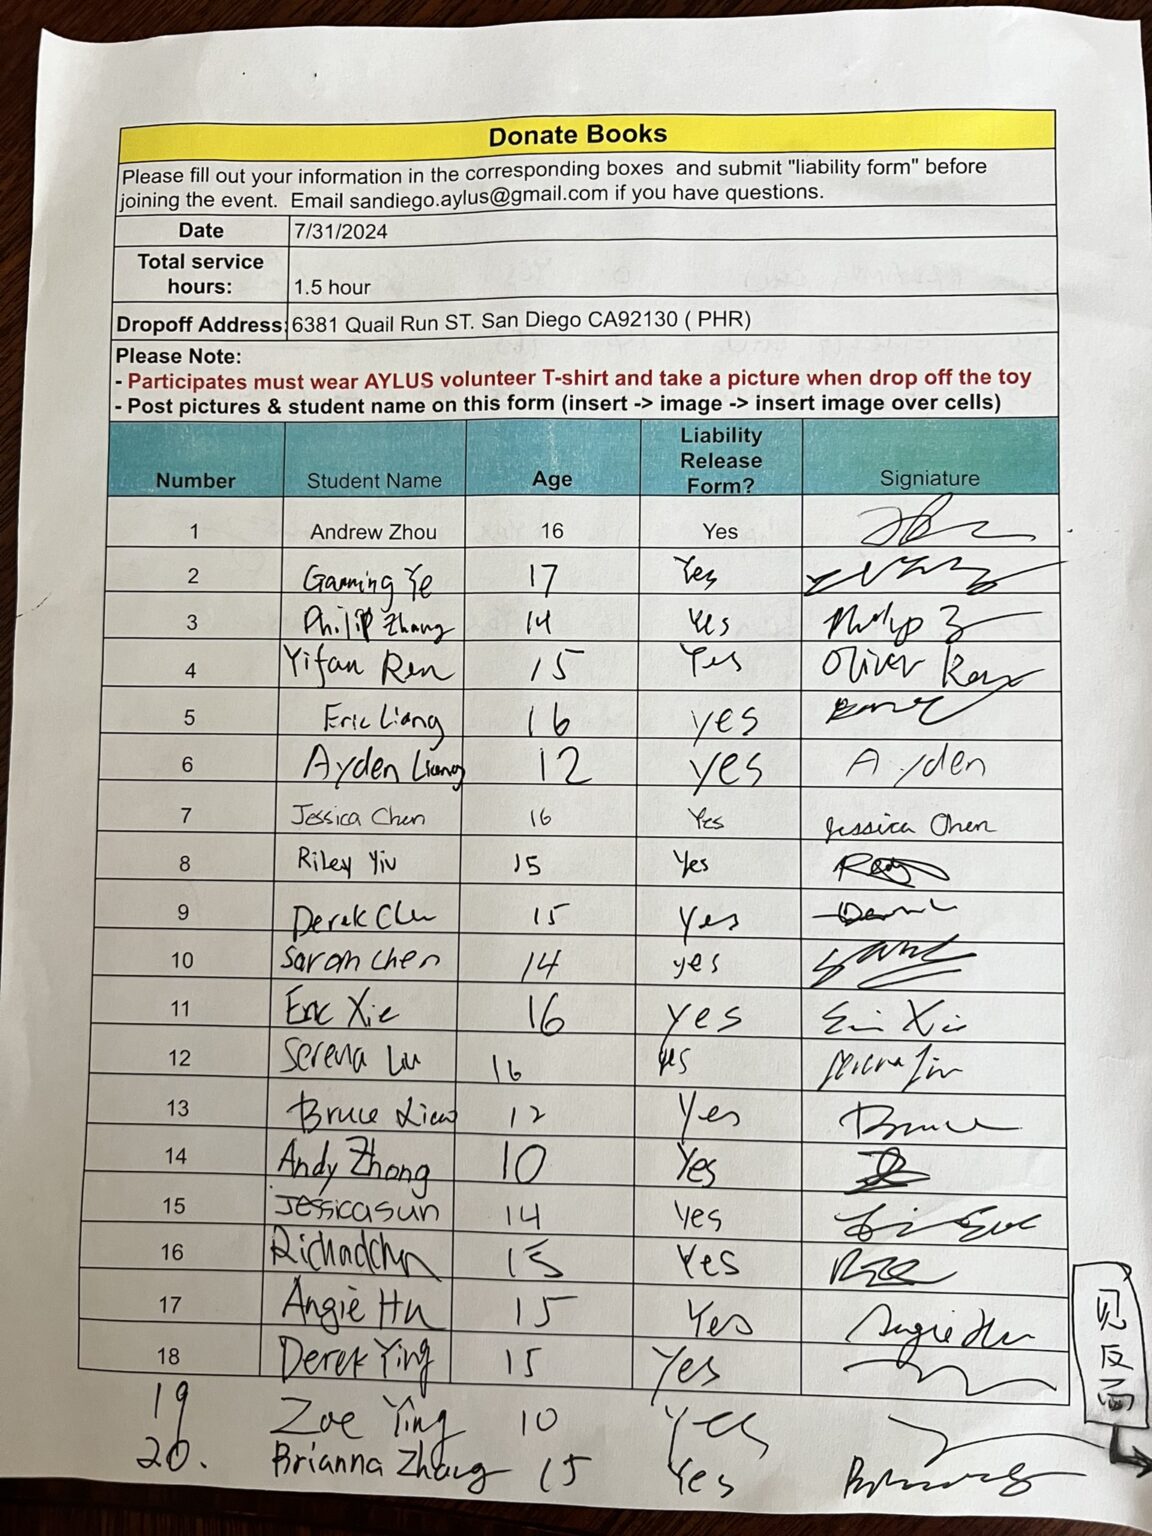 Donate Books
Please fill out your information in the corresponding boxes and submit "liability form" before
joining the event. Email sandiego.aylus@gmail.com if you have questions.
Date 7/31/2024
Total service
hours: 1.5 hour
Dropoff Address: 6381 Quail Run ST. San Diego CA92130 ( PHR)
Please Note:
- Participates must wear AYLUS volunteer T-shirt and take a picture when drop off the toy
- Post pictures & student name on this form (insert -> image -> insert image over cells)
Number Student Name Age Liability Release Form? Signiature
1 Andrew Zhou 16 Yes
2 Ye 17 Yes
3 Philip Zhang 14 Yes Philip Z
4 Yifan Ren 15 Yes Oliver Ren
5 Eric Liang 16 yes
6 Ayden Liang 12 yes Ayden
7 Jessica Chen 16 Yes Jessica Chen
8 Riley Yiu 15 Yes
9 Derek 15 Yes
10 Sarah Chen 14 yes
11 Eric Xie 16 yes Eric Xie
12 Serena Liu 16 yes Serena Liu
13 Bruce 12 Yes Bruce
14 Andy Zhong 10 Yes
15 Jessica Sun 14 Yes
16 15 Yes
17 Angie Hu 15 Yes Angie Hu
18 Derek Ying 15 Yes
19 Zoe Ying 10 Yes
20. Brianna Zhang 15 Yes
见反面